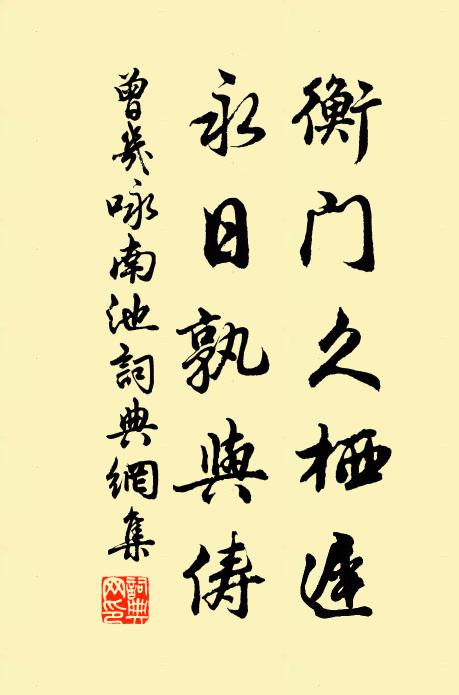 衡门久栖遲
永日孰與俦
曾幾咏南池詞典網集
詞典网印